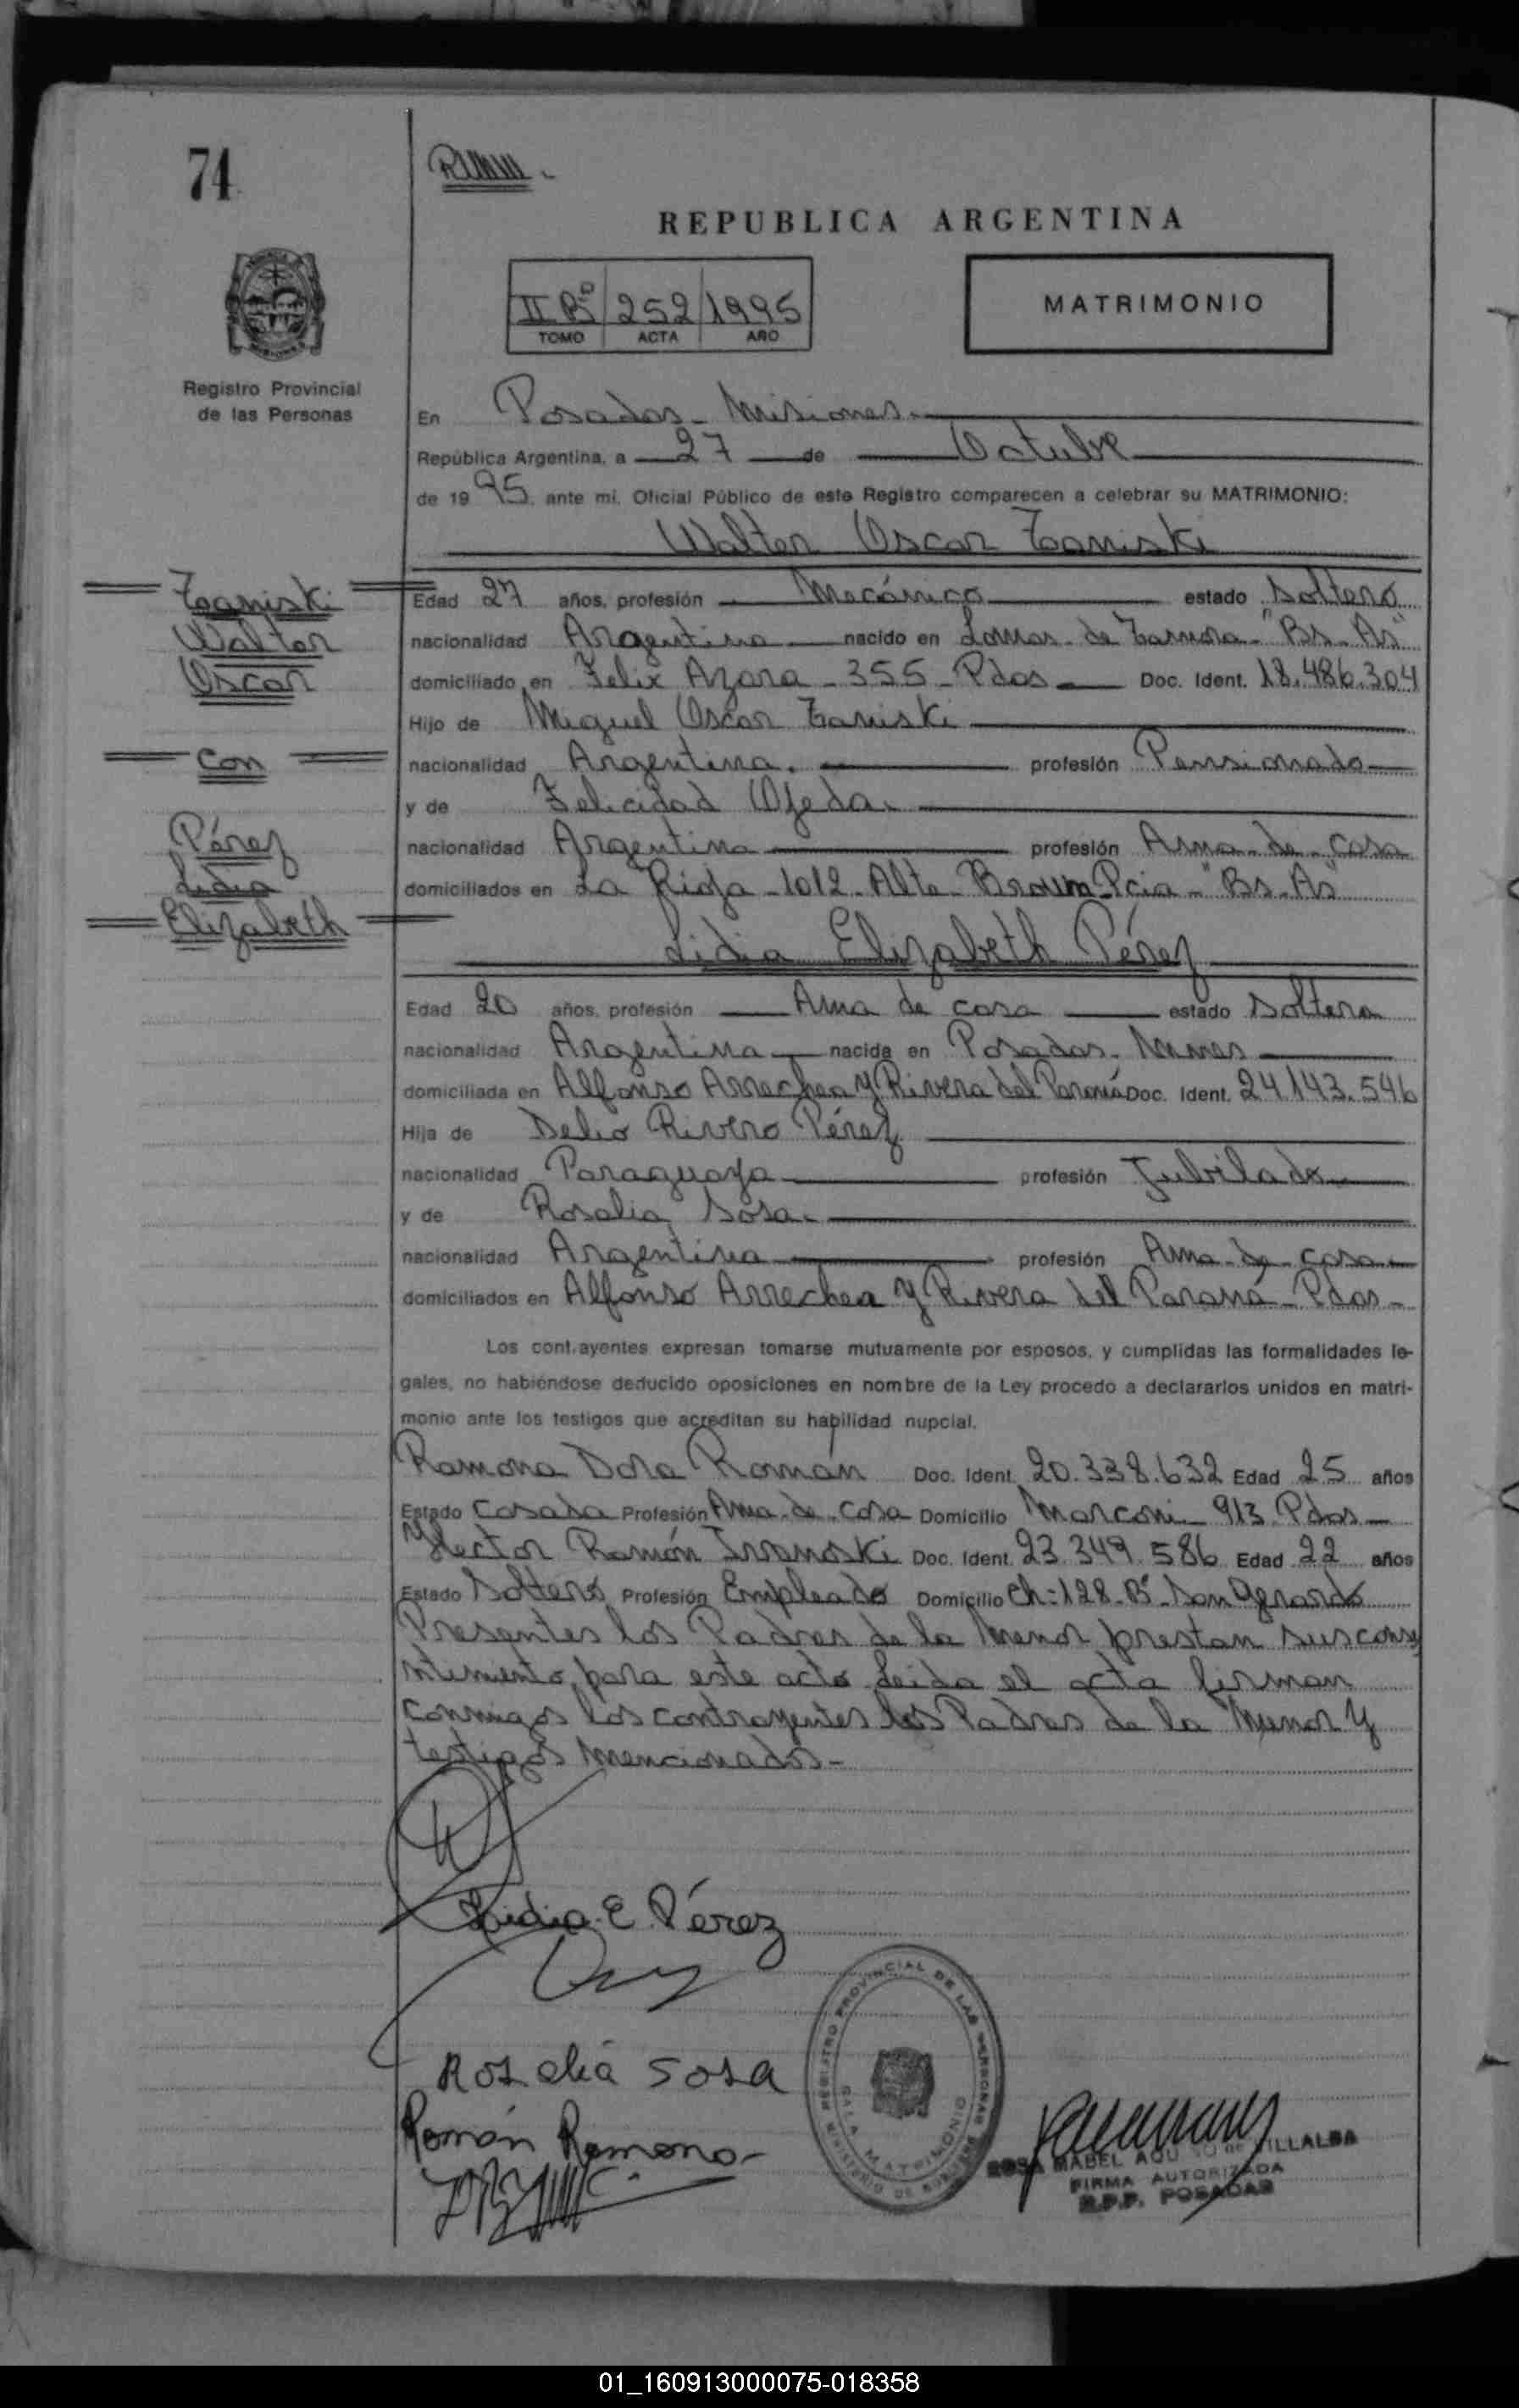 74
REPUBLICA ARGENTINA
II Bº 252 1995
TOMO ACTA AÑO
MATRIMONIO
Registro Provincial
de las Personas
En Posadas - Misiones.
República Argentina, a 27 de Octubre
de 19 95. ante mi, Oficial Público de este Registro comparecen a celebrar su MATRIMONIO:
Walter Oscar Zaniski
Zaniski
Walter
Oscar
con
Pérez
Lidia
Elizabeth
Edad 27 años, profesión Mecánico estado Soltero
nacionalidad Argentina nacido en Lomas de Zamora "Bs-As"
domiciliado en Felix Azara - 355 - Pdas Doc. Ident. 18.486.304
Hijo de Miguel Oscar Zaniski
nacionalidad Argentina. profesión Pensionado
y de Felicidad Ojeda.
nacionalidad Argentina profesión Ama de casa
domiciliados en La Rioja - 1012 - Alte Brown Pcia - "Bs-As"
Lidia Elizabeth Pérez
Edad 20 años, profesión Ama de casa estado Soltera
nacionalidad Argentina nacida en Posadas - Mnes
domiciliada en Alfonso Arrechea y Rivera del Paraná Doc. Ident. 24.143.546
Hija de Delio Rivero Pérez
nacionalidad Paraguaya profesión Jubilado
y de Rosalia Sosa.
nacionalidad Argentina profesión Ama de casa
domiciliados en Alfonso Arrechea y Rivera del Paraná - Pdas -
Los contrayentes expresan tomarse mutuamente por esposos, y cumplidas las formalidades le-
gales, no habiéndose deducido oposiciones en nombre de la Ley procedo a declararlos unidos en matri-
monio ante los testigos que acreditan su habilidad nupcial.
Ramona Dora Román Doc. Ident. 20.338.632 Edad 25 años
Estado Casada Profesión Ama de casa Domicilio Marconi - 913 - Pdas -
Hector Ramón Iwanoski Doc. Ident. 23.349.586 Edad 22 años
Estado Soltero Profesión Empleado Domicilio Ch=128-Bº-San Gerardo
Presentes los Padres de la Menor prestan sus conse
ntimiento para este acto leida el acta firman
conmigos los contrayentes los Padres de la Menor y
testigos mencionados -
Lidia E. Pérez
Rosalia Sosa
Román Ramona
REGISTRO PROVINCIAL DE LAS PERSONAS
SALA MATRIMONIO
MINISTERIO DE GOBIERNO
ROSA MABEL AQUINO de VILLALBA
FIRMA AUTORIZADA
R.P.P. POSADAS
01_160913000075-018358